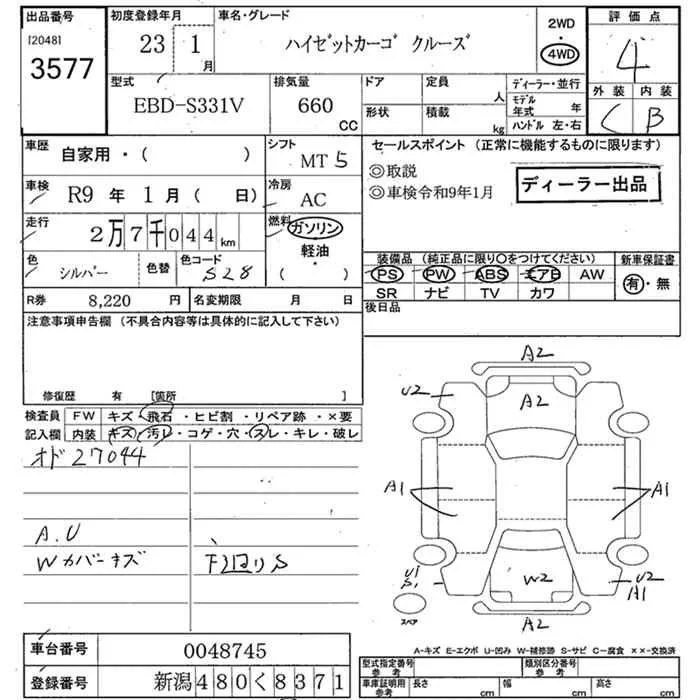 出品番号 初度登録年月 車名・グレード 2WD 評価点
[2048] 23 1 月 ハイゼットカーゴ クルーズ 4WD 4
3577
型式 排気量 ドア 定員 人 ディーラー・並行 外装 内装
EBD-S331V 660 CC 形状 積載 kg モデル年式 年 C B
ハンドル 左・右
車歴 自家用・( ) シフト MT 5 セールスポイント (正常に機能するものに限ります)
◎取説
車検 R9 年 1 月 ( 日) 冷房 AC ◎車検令和9年1月 ディーラー出品
走行 2万7千044km 燃料 ガソリン
軽油
・
( )
色 シルバー 色替 色コード S28
装備品 (純正品に限り〇をつけてください) 新車保証書
PS PW ABS エアB AW 有・無
SR ナビ TV カワ
R券 8,220 円 名変期限 月 日 後日品
注意事項申告欄 (不具合内容等は具体的に記入して下さい)
修復歴 有 [箇所 ]
検査員 FW キズ・飛石・ヒビ割・リペア跡・×要
記入欄 内装 キズ・汚レ・コゲ・穴・スレ・キレ・破レ
オド27044
A.U
Wカバーキズ
下回りS
A2
U2 A2
A1 A1
U1 S1 W2 U2 A1
スペア A2
A-キズ E-エクボ U-凹み W-補修跡 S-サビ C-腐食 ××-交換済
車台番号 0048745
型式指定番号 参考 類別区分番号 参考
登録番号 新潟480く8371
車庫証明用 参考 長さ cm 幅 cm 高さ cm